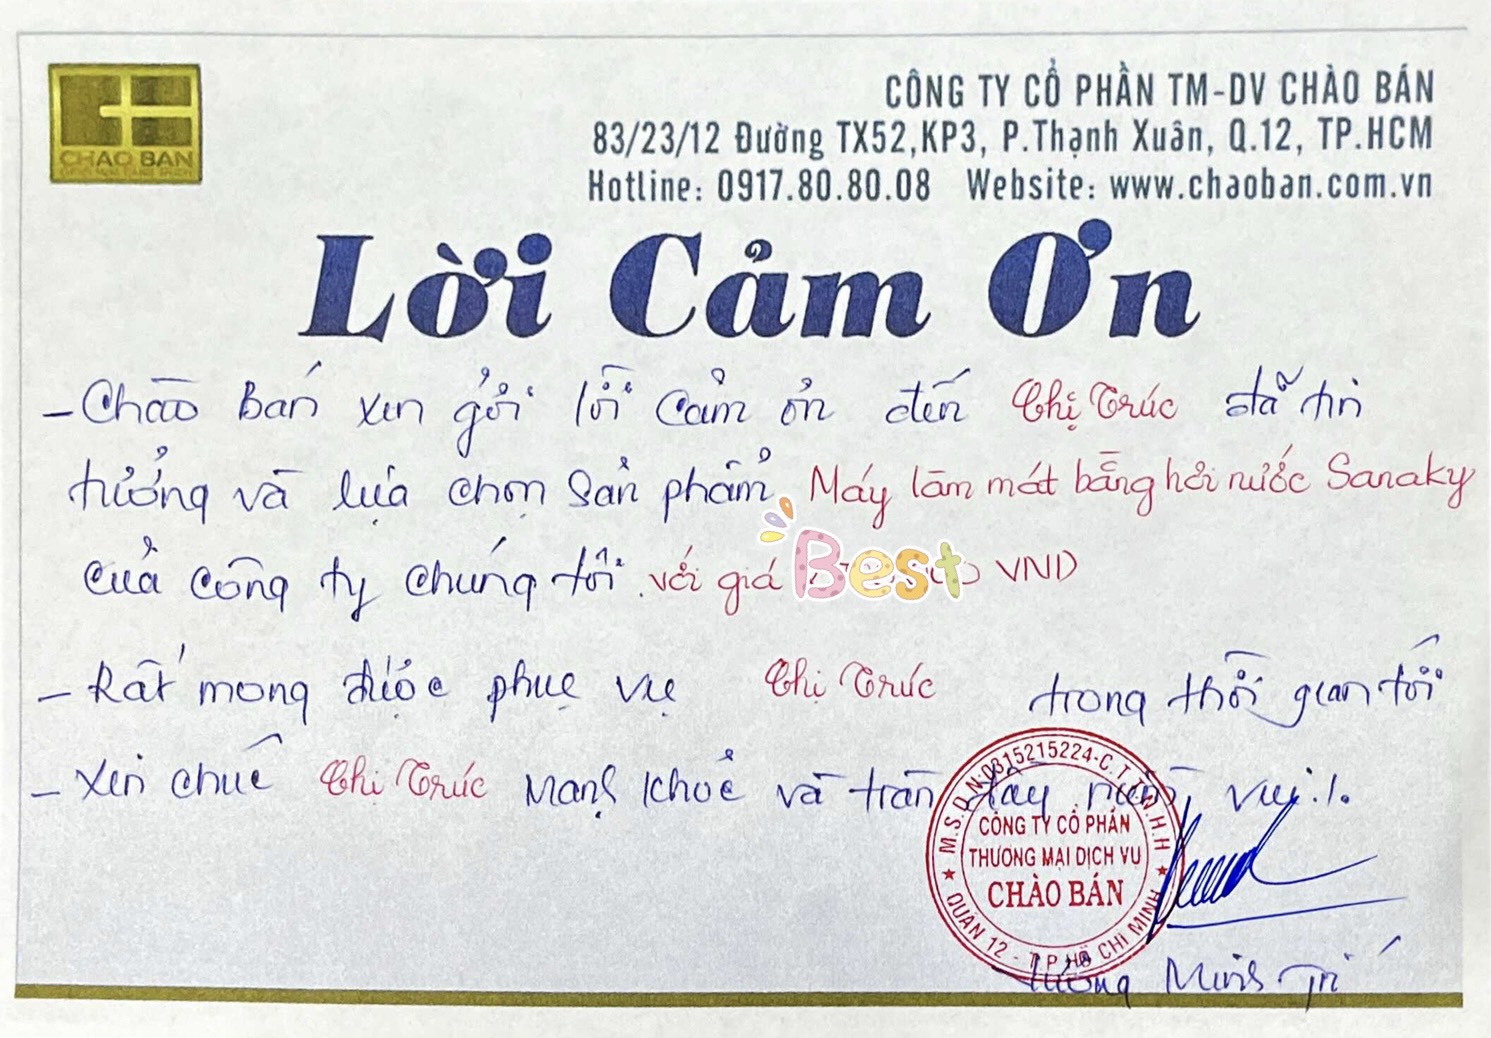 CHAO BAN
CÔNG TY CỔ PHẦN TM-DV CHÀO BÁN
83/23/12 Đường TX52,KP3, P.Thạnh Xuân, Q.12, TP.HCM
Hotline: 0917.80.80.08 Website: www.chaoban.com.vn
Lời Cảm Ơn
- Chào Bán xin gửi lời cảm ơn đến Chị Trúc đã tin
tưởng và lựa chọn sản phẩm Máy làm mát bằng hơi nước Sanaky
của công ty chúng tôi. với giá VND
Best
- Rất mong được phục vụ Chị Trúc trong thời gian tới
- Xin chúc Chị Trúc mạnh khoẻ và tràn đầy niềm vui./.
M.S.D.N:0315215224-C.T.T.N.H.H
CÔNG TY CỔ PHẦN
THƯƠNG MẠI DỊCH VỤ
CHÀO BÁN
QUẬN 12 - T.P HỒ CHÍ MINH
Minh Trí